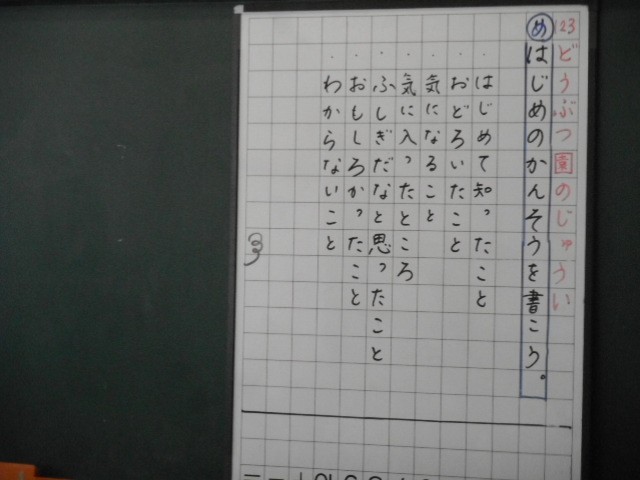 123 どうぶつ園のじゅうい
めはじめのかんそうを書こう。
・はじめて知ったこと
・おどろいたこと
・気になること
・気に入ったところ
・ふしぎだなと思ったこと
・おもしろかったこと
・わからないこと